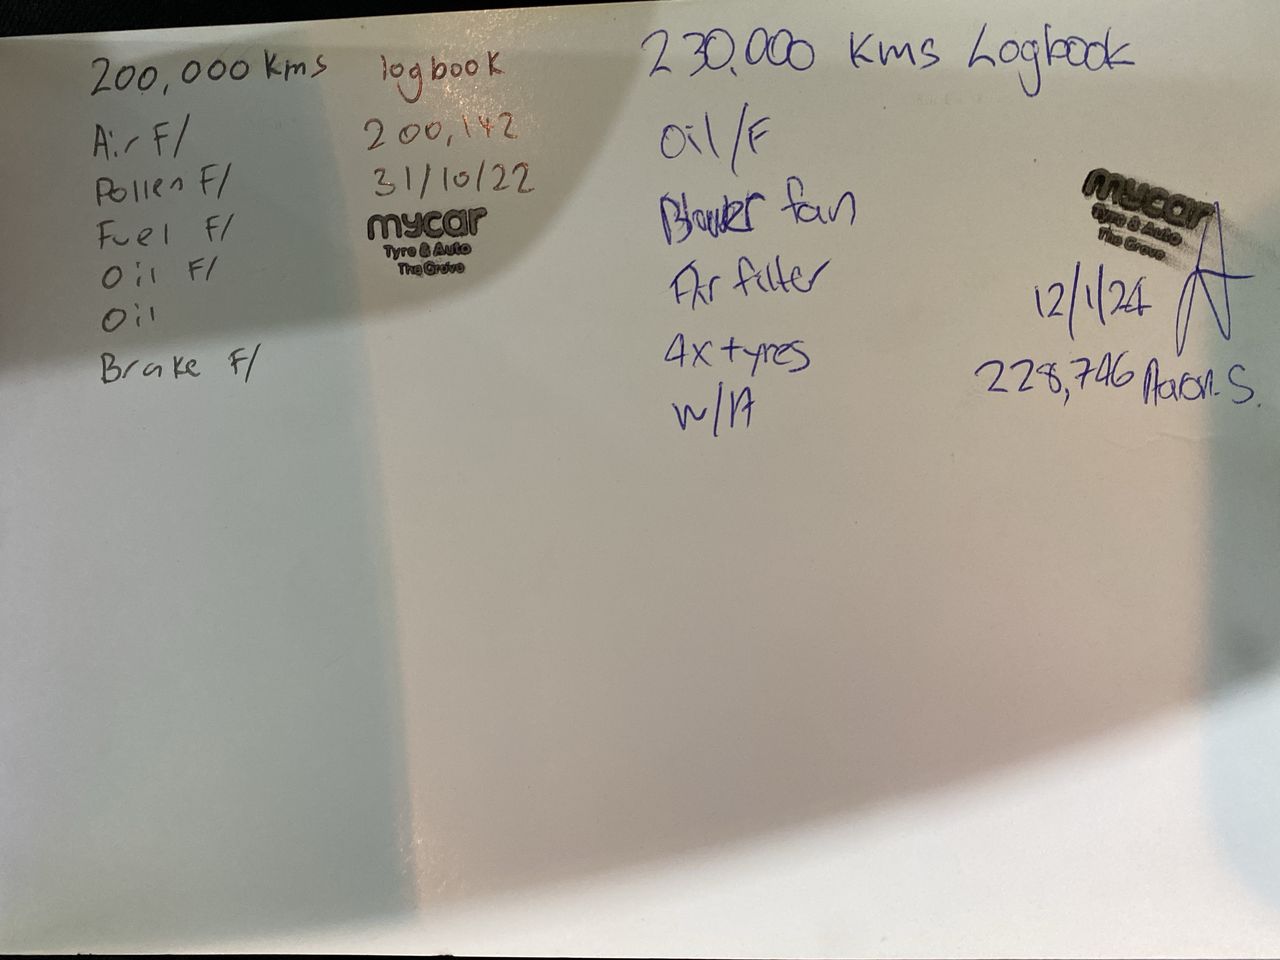 200,000 Kms logbook
Air F/ 200,142
Pollen F/ 31/10/22
Fuel F/
Oil F/
Oil
Brake F/
mycar
Tyre & Auto
The Grove
230,000 Kms Logbook
Oil/F
Blower fan
Air filter
4x tyres
W/A
mycar
Tyre & Auto
The Grove
12/1/24
228,746 Aaron. S.